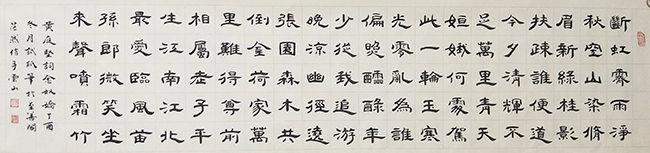 斷虹霽雨淨
秋空山染脩
眉新綠桂影
扶疎誰便道
今夕清輝不
足萬里青天
姮娥何處駕
此一輪玉寒
光零亂為誰
偏照醽醁年
少從我追游
晚涼幽徑遶
張園森木共
倒金荷家萬
里難得尊前
相屬老子平
生江南江北
最愛臨風笛
孫郎微笑坐
來聲噴霜竹
黃庭堅詞念奴嬌丁酉
冬月試紙筆於至善閣
信手